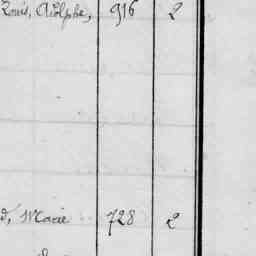 Louis, Adolphe, 916 2
d, Marie 728 2